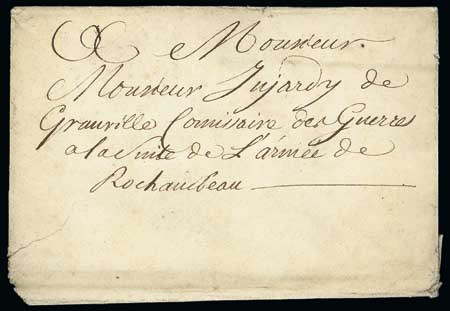 A Monsieur
Monsieur Jujardy de
Granville Comissaire des Guerres
a la Suite de L'armée de
Rochambeau